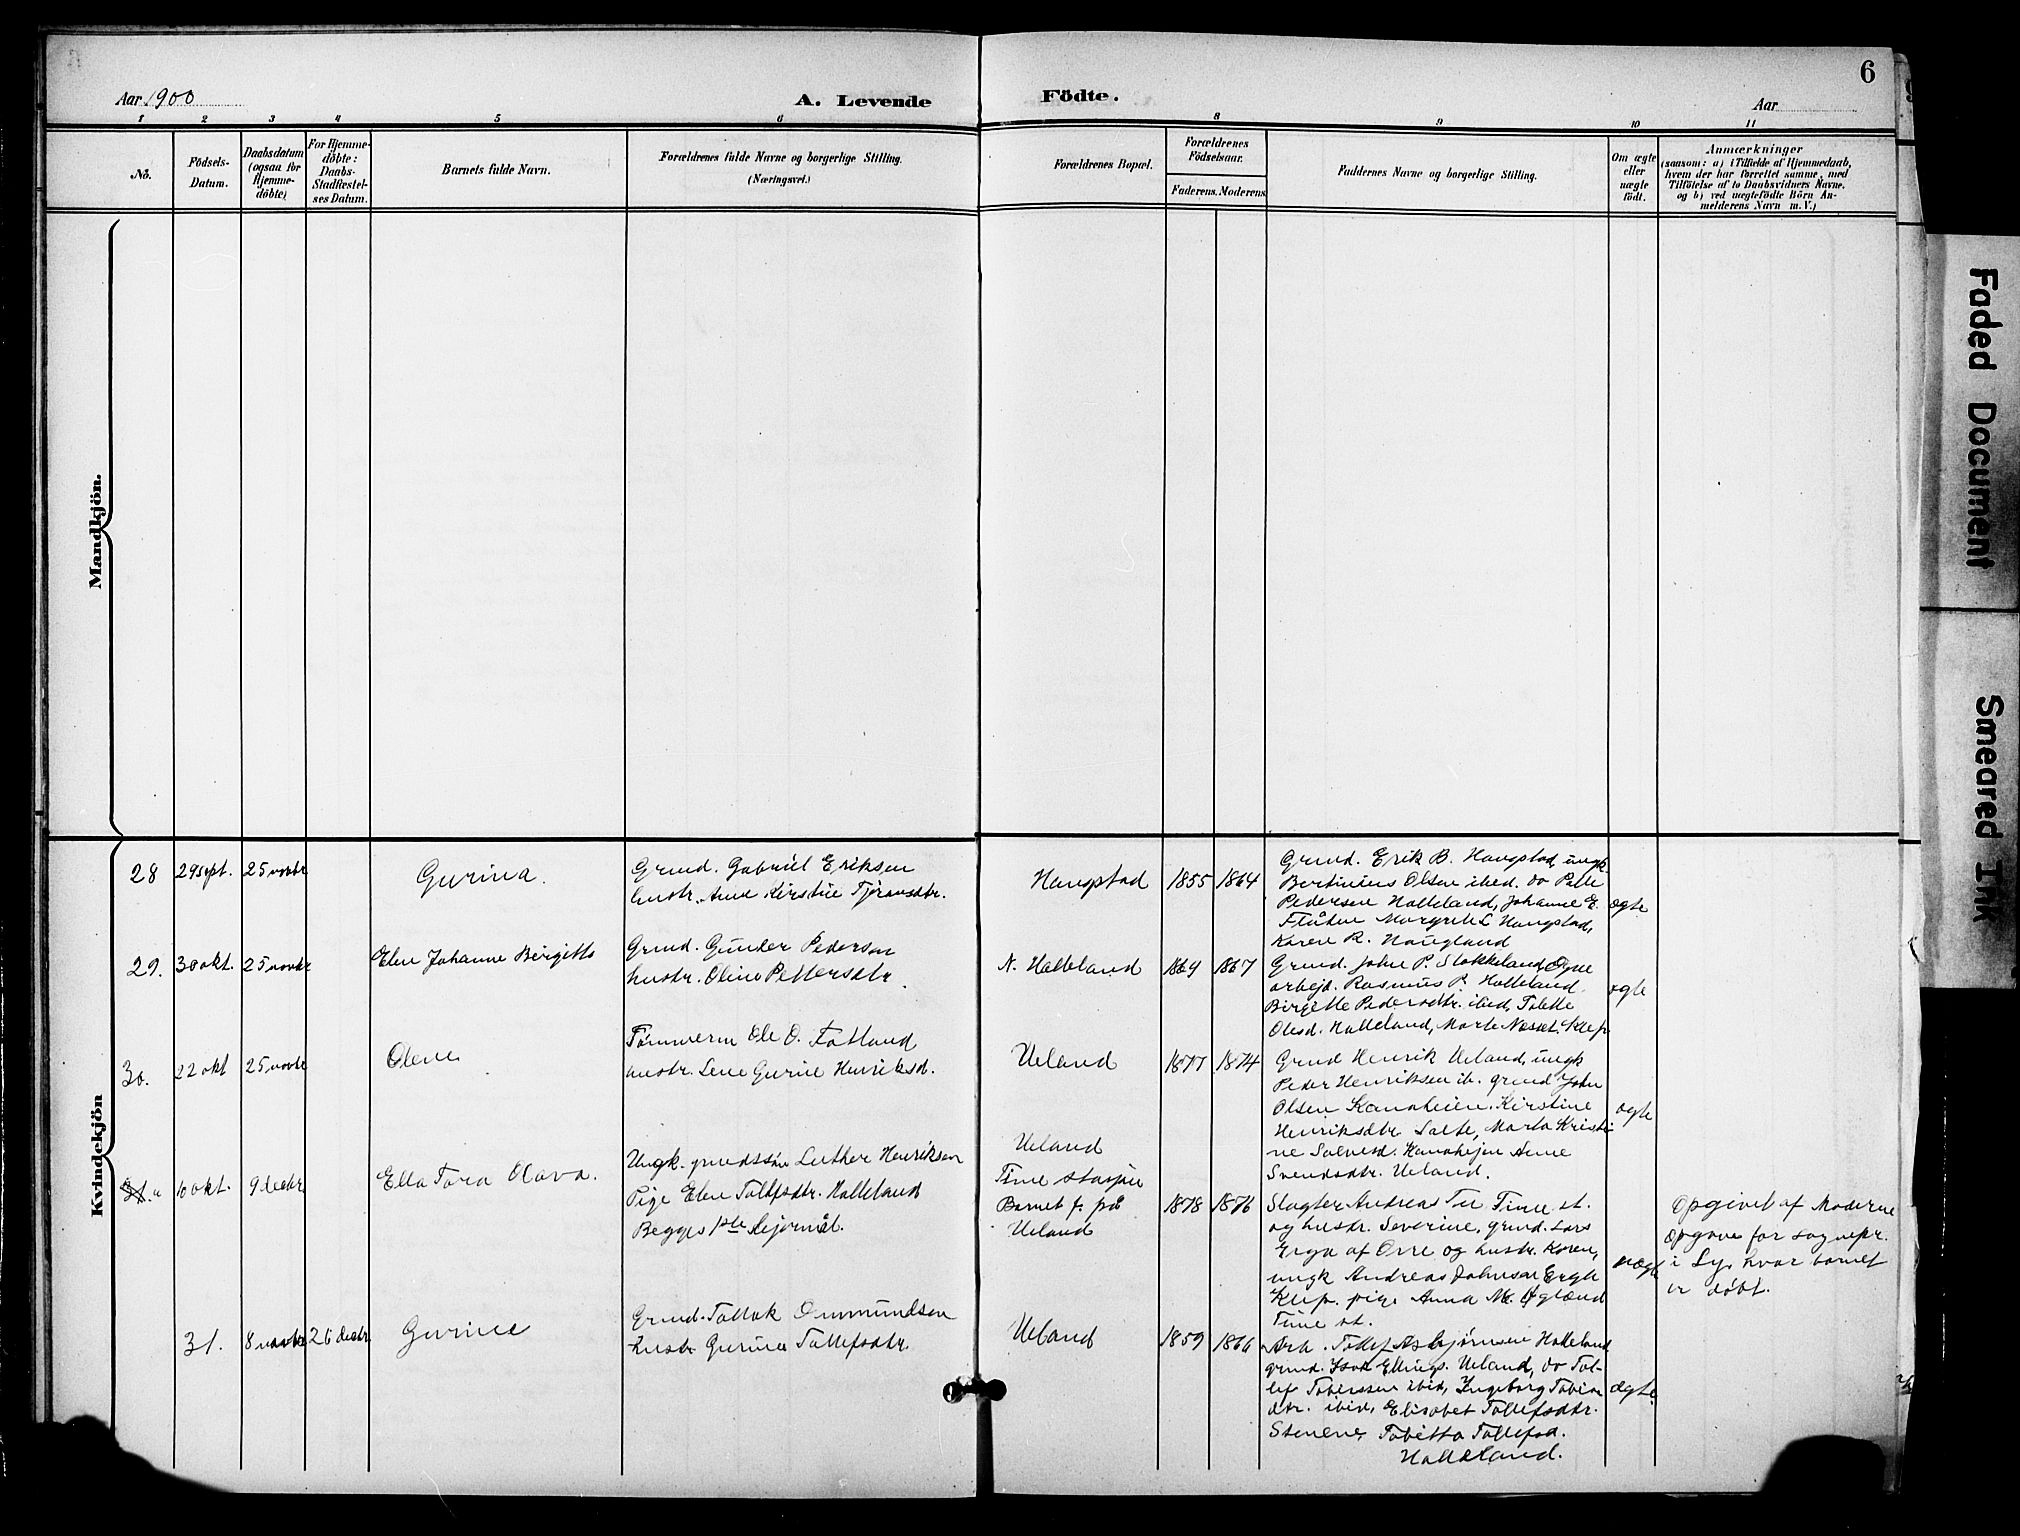 6
Aar 1900
A. Levende
Födte.
Aar
1 2 3 4 5 6 8 9 10 11
No.
Födsels-
Datum.
Daabsdatum
(ogsaa for
Hjemme-
döbte)
For Hjemme-
døbte:
Daabs-
Stadfæstel-
ses Datum.
Barnets fulde Navn.
Forældrenes fulde Navne og borgerlige Stilling.
(Næringsvei.)
Forældrenes Bopæl.
Forældrenes
Födselsaar.
Faderens. Moderens.
Faddernes Navne og borgerlige Stilling.
Om ægte
eller
uægte
födt.
Anmærkninger
(saasom: a) i Tilfælde af Hjemmedaab,
hvem der har forrettet samme, med
Tilføielse af to Daabsvidners Navne.
og b) ved uægtefødte Börn An-
melderens Navn m. V.)
Mandkjön.
Kvindekjön
28
29 sept.
25 novbr
Gurina.
Grmd. Gabriel Eriksen
hustr. Ane Kirstie Tjøransdtr.
Haugstad
1855
1864
Grmd. Erik B. Haugstad, ungk
Bertinius Olsen ibed. do Palle
Pedersen Halleland, Johanne E.
Flåten Margrete L Haugstad,
Karen R. Haugland
ægte
29.
30 okt.
25 novbr
Elen Johanne Birgitte
Grmd. Gunder Pedersen
hustr. Oline Pettersdtr.
N. Halleland
1864
1867
Grmd. John P. Stokkeland Ogne
arbejd. Rasmus P. Halleland.
Birgitte Pedersdtr. ibed, Tolette
Olesd. Halleland, Marte Næset, Klep
ægte
30.
22 okt
25 novbr
Olene
Tømmerm Ole O. Fotland
hustr. Lene Gurine Henriksd.
Ueland
1877
1874
Grmd Henrik Ueland, ungk
Peder Henriksen ib. grmd John
Olsen Kanaheien. Kirstine
Henriksdtr Salte, Marta Kristi
ne Salvesd. Kanahejen Anne
Svendsdtr. Ueland.
ægte
10 okt.
9 decbr
Ella Tora Olava.
Ungk. grmdssøn Luther Henriksen
Pige Elen Tollefsdtr. Halleland
Begges 1ste Lejermål.
Ueland
Time stasjon
Barnet f. på
Ueland
1878
1876
Slagter Andreas Tu Time st.
og hustr. Severine, grmd. Lars
Erga af Orre og hustr. Karen,
ungk Andreas Johnsen Erga
Klep. pige Anna M. Øgland
Time st.
uægte
Opgivet af Moderne
Opgave for sognepr.
i Ly, hvor barnet
er døbt.
31.
8 novbr
26 decbr
Gurine
Grmd. Tollak Ommundsen
hustr Gurine Tollefsdtr.
Ueland
1859
1866
Arb. Tollef Asbjørnsen Halleland
grmd. Isak Ellings. Ueland, do Tol-
lef Tobiassen ibid, Ingeborg Tobias
dtr. ibid, Elisabet Tollefsdtr.
Stenene, Tobitta Tollefsd.
Halleland.
ægte
Faded Document
Smeared Ink